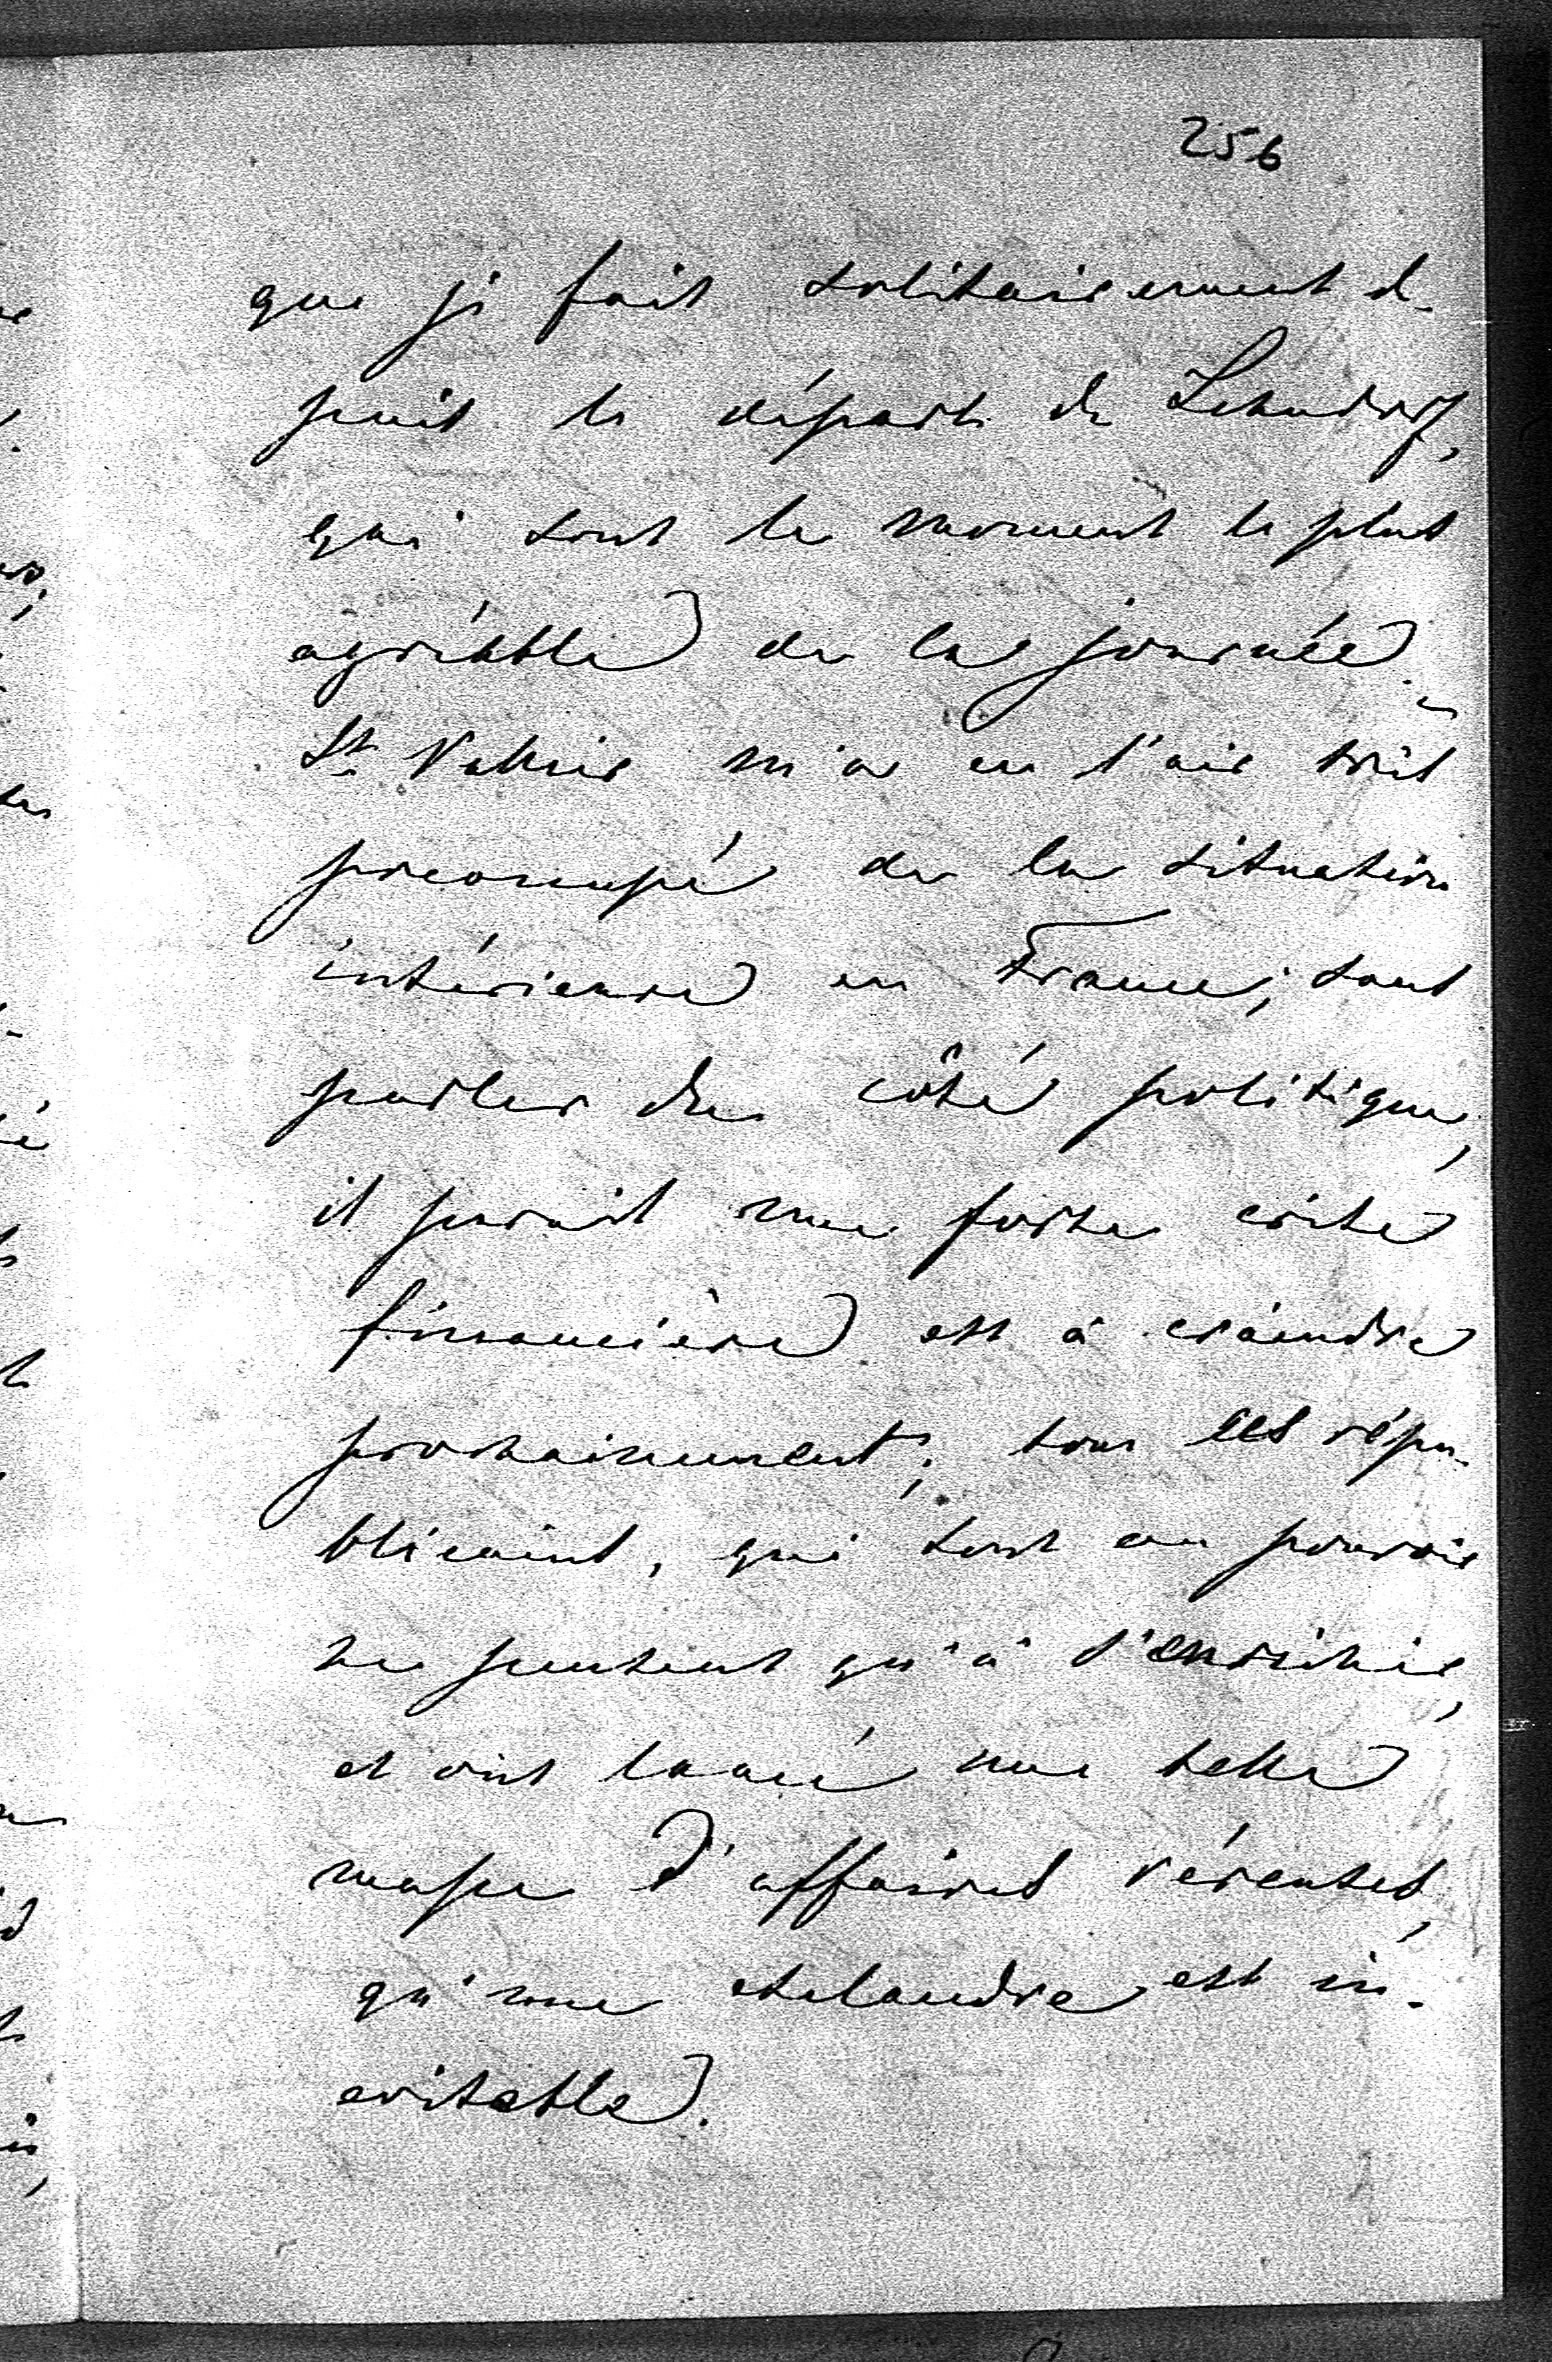 256
que je fais solitairement de-
puis le départ de Lehndorf,
qui sont le moment le plus
agréable de la journée.
St Vallier m'a eu l'air très
preoccupé de la situation
intérieure en France; sans
parler du côté politique,
il parait une forte crise
financière est à craindre
prochainement; tous les répu-
blicains, qui sont au pouvoir
ne pensent qu'à s'enrichir,
et ont lancé une telle
masse d'affaires véreuses,
qu'une esclandre est in-
evitable.